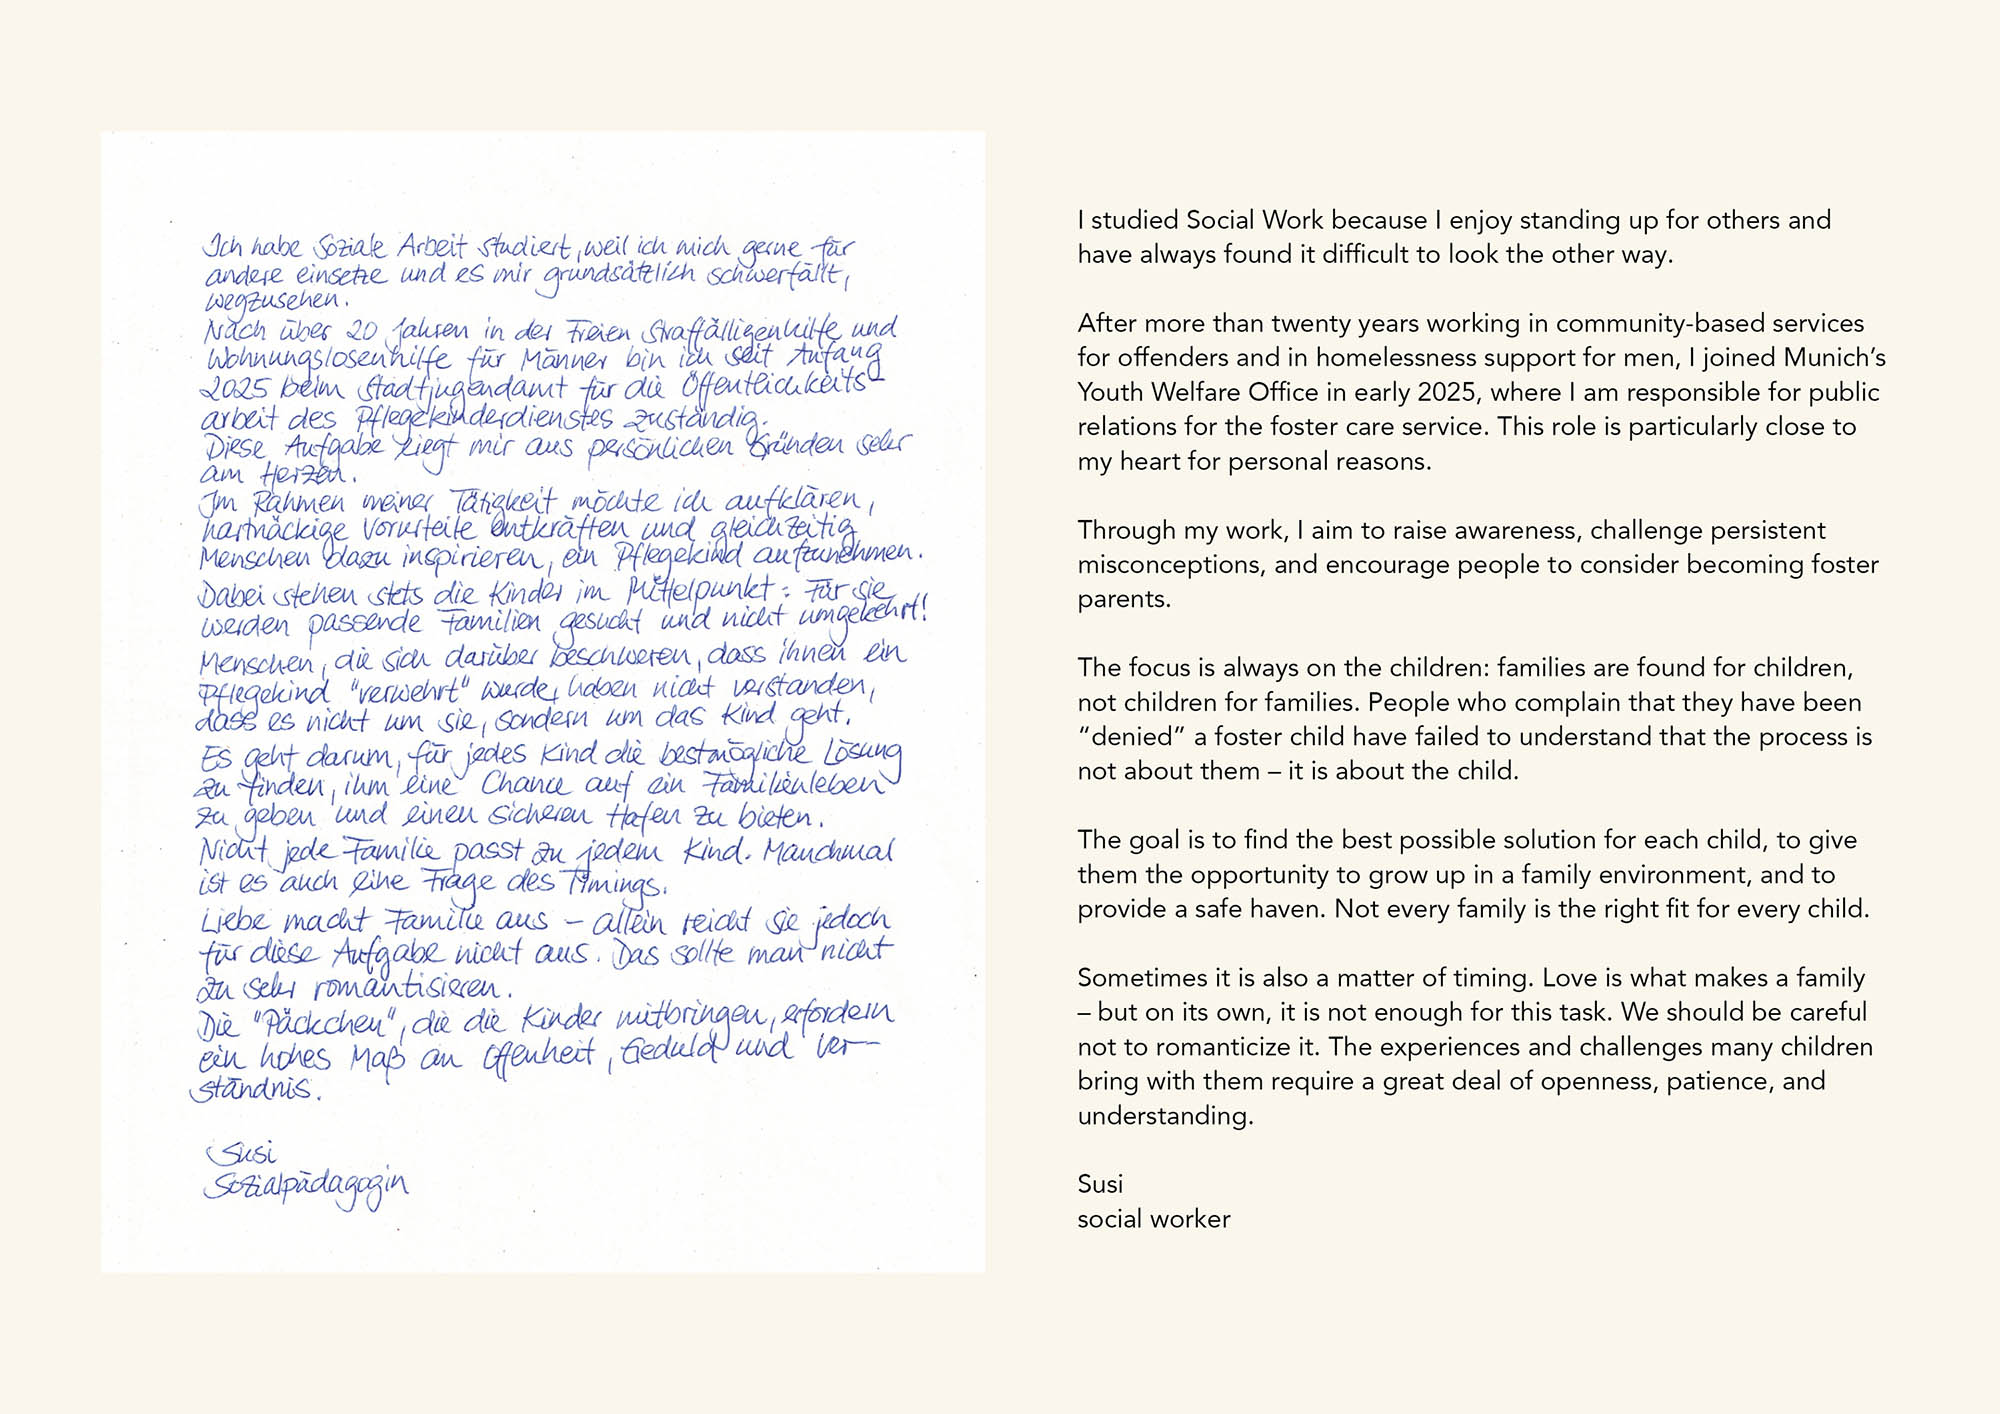 Ich habe Soziale Arbeit studiert, weil ich mich gerne für
andere einsetze und es mir grundsätzlich schwerfällt,
wegzusehen.
Nach über 20 Jahren in der Freien Straffälligenhilfe und
Wohnungslosenhilfe für Männer bin ich seit Anfang
2025 beim Stadtjugendamt für die Öffentlichkeits-
arbeit des Pflegekinderdienstes zuständig.
Diese Aufgabe liegt mir aus persönlichen Gründen sehr
am Herzen.
Im Rahmen meiner Tätigkeit möchte ich aufklären,
hartnäckige Vorurteile entkräften und gleichzeitig
Menschen dazu inspirieren, ein Pflegekind aufzunehmen.
Dabei stehen stets die Kinder im Mittelpunkt: Für sie
werden passende Familien gesucht und nicht umgekehrt!
Menschen, die sich darüber beschweren, dass ihnen ein
Pflegekind "verwehrt" wurde, haben nicht verstanden,
dass es nicht um sie, sondern um das Kind geht.
Es geht darum, für jedes Kind die bestmögliche Lösung
zu finden, ihm eine Chance auf ein Familienleben
zu geben und einen sicheren Hafen zu bieten.
Nicht jede Familie passt zu jedem Kind. Manchmal
ist es auch eine Frage des Timings.
Liebe macht Familie aus – allein reicht sie jedoch
für diese Aufgabe nicht aus. Das sollte man nicht
zu sehr romantisieren.
Die "Päckchen", die die Kinder mitbringen, erfordern
ein hohes Maß an Offenheit, Geduld und Ver-
ständnis.
Susi
Sozialpädagogin
I studied Social Work because I enjoy standing up for others and
have always found it difficult to look the other way.
After more than twenty years working in community-based services
for offenders and in homelessness support for men, I joined Munich’s
Youth Welfare Office in early 2025, where I am responsible for public
relations for the foster care service. This role is particularly close to
my heart for personal reasons.
Through my work, I aim to raise awareness, challenge persistent
misconceptions, and encourage people to consider becoming foster
parents.
The focus is always on the children: families are found for children,
not children for families. People who complain that they have been
“denied” a foster child have failed to understand that the process is
not about them – it is about the child.
The goal is to find the best possible solution for each child, to give
them the opportunity to grow up in a family environment, and to
provide a safe haven. Not every family is the right fit for every child.
Sometimes it is also a matter of timing. Love is what makes a family
– but on its own, it is not enough for this task. We should be careful
not to romanticize it. The experiences and challenges many children
bring with them require a great deal of openness, patience, and
understanding.
Susi
social worker